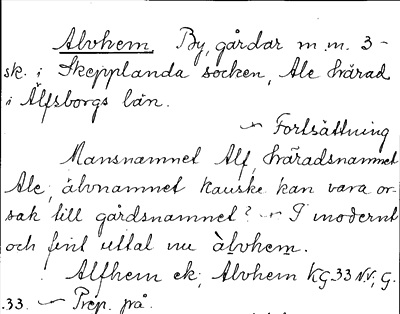 Alvhem. By, gårdar m.m. 3-
sk. i Skepplanda socken, Ale härad
i Älfsborgs län.
~ Fortsättning
Mansnamnet Alf, häradsnamnet
Ale, älvnamnet kanske kan vara or-
sak till gårdsnamnet? ~ I modernt
och fint uttal nu àlvhem.
Alfhem ek; Alvhem KG33 N.V; G.
.33. ~ Prep. på.